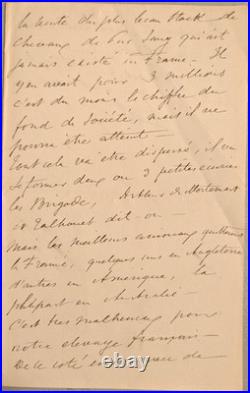 la vente du plus beau Stock de
Chevaux de Pur Sang qui ait
jamais existé en France. Il
y en avait pour 3 millions
c'est du moins le chiffre du
fond de Société, mais il ne
pourra être atteint —
Tout cela va être dispersé, il en
se formera deux ou 3 petites écuries
les Brigode, Arthur de Mortemart
et Talhouet dit on —
Mais les meilleurs animaux quitteront
la France, quelques uns en Angleterre
d'autres en Amérique, la
plupart en Australie —
C'est très malheureux pour
notre élevage français —
De le coté de